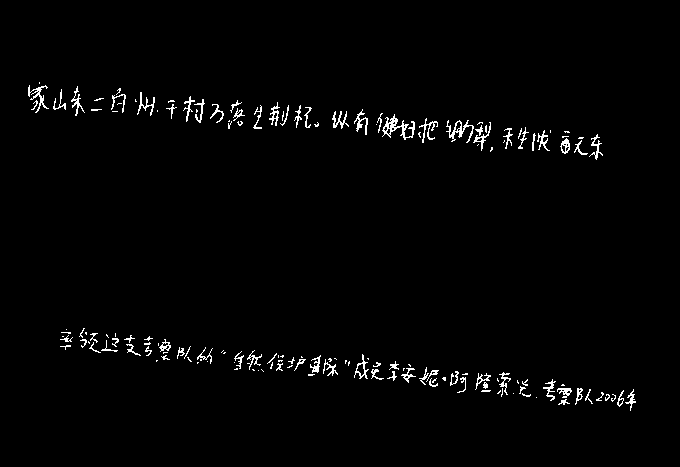 家山东二百州.千村万落生荆杞。纵有健妇把锄犁,禾生陇亩无东
率领这支考察队的"自然保护国际"成员李安妮·阿隆索说.考察队2006年